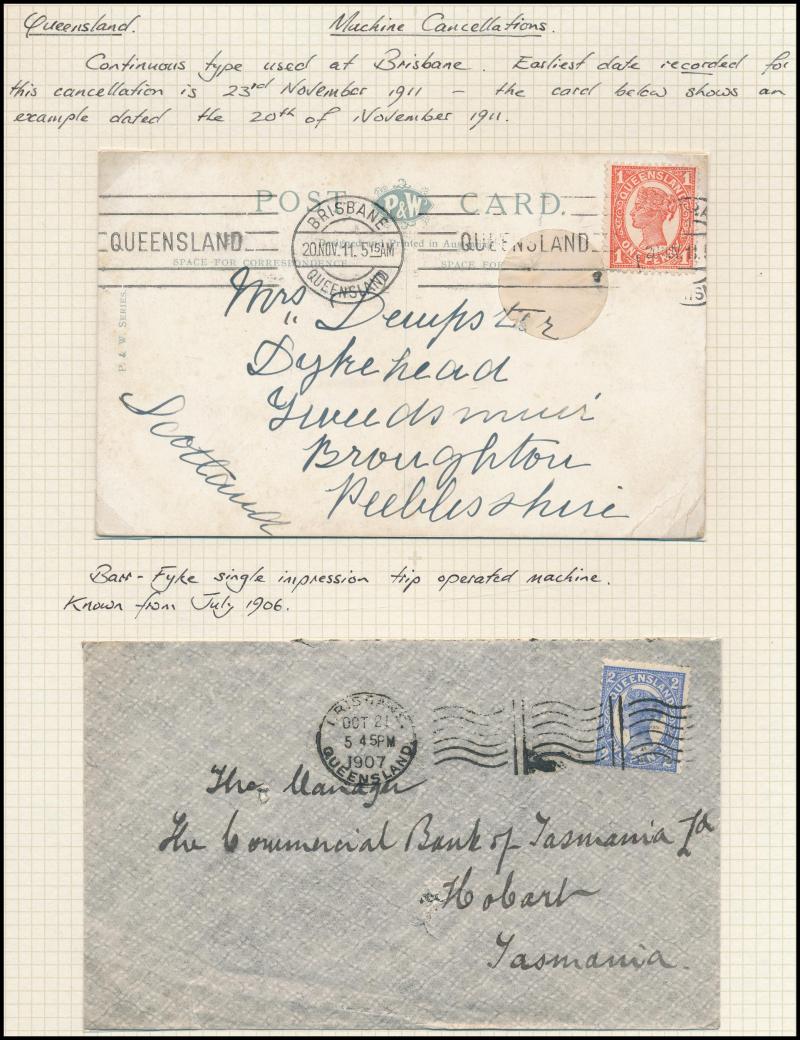 Queensland. Machine Cancellations.
Continuous type used at Brisbane. Earliest date recorded for
this cancellation is 23rd November 1911 - the card below shows an
example dated the 20th of November 1911.
POST P&W CARD.
QUEENSLAND
BRISBANE
20.NOV.11.5 15AM
QUEENSLAND
QUEENSLAND.
SPACE FOR CORRESPONDENCE
SPACE FOR
Printed in Au
1 QUEENSLAND 1
P. & W. SERIES.
Mrs Dempster
"
Dykehead
Tweedsmuir
Broughton
Peeblesshire
Scotland
Barr-Fyke single impression trip operated machine.
Known from July 1906.
BRISBANE
OCT 21
5 45PM
1907
QUEENSLAND
2 QUEENSLAND 2
The Manager
The Commercial Bank of Tasmania Ld
Hobart
Tasmania.